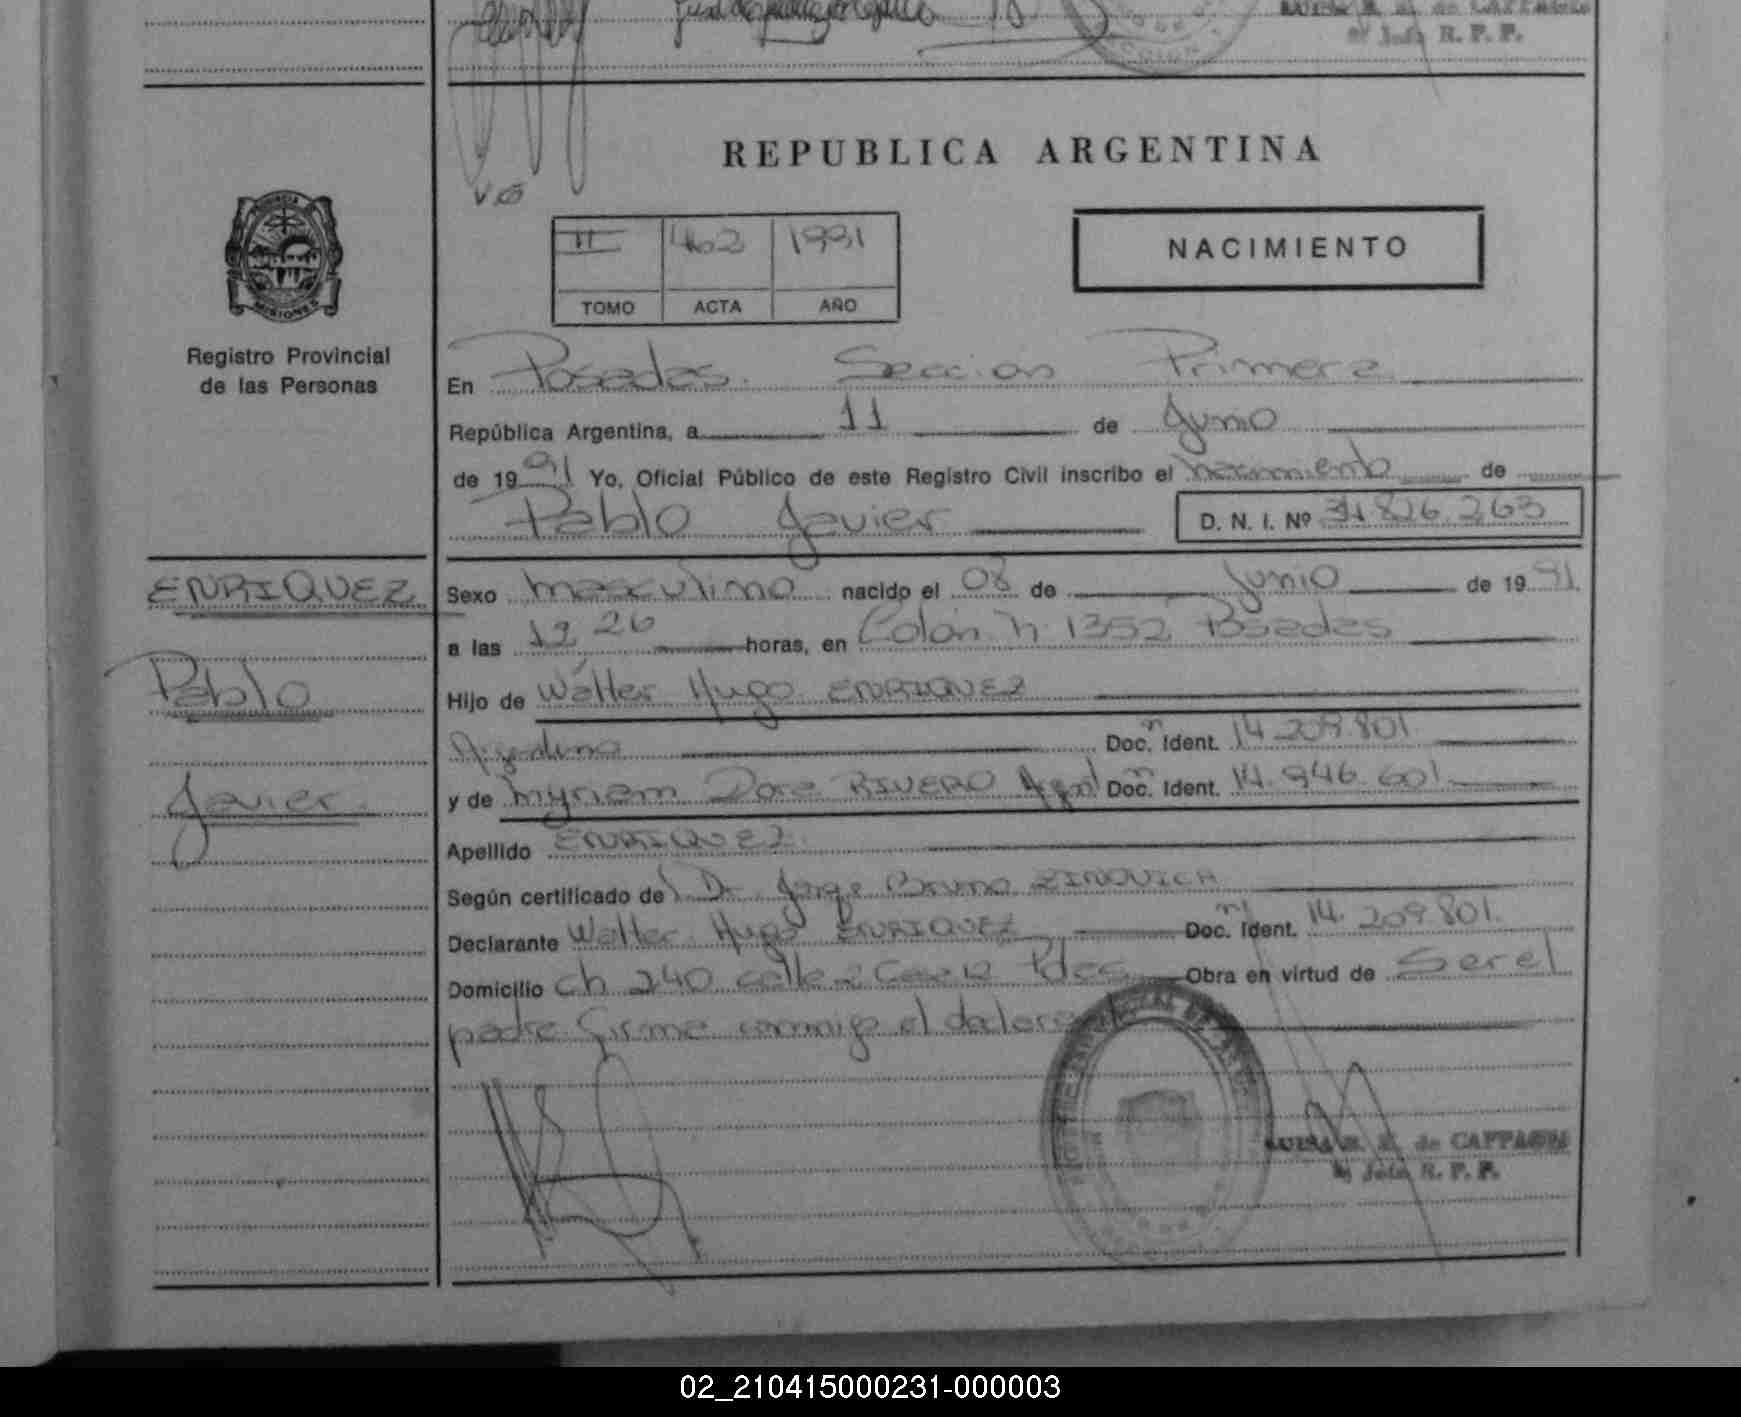 R. P. P.
REPUBLICA ARGENTINA
II 462 1991
TOMO ACTA AÑO
NACIMIENTO
PROVINCIA
MISIONES
Registro Provincial
de las Personas
En Posadas. Seccion Primera
República Argentina, a 11 de Junio
de 1991 Yo, Oficial Público de este Registro Civil inscribo el nacimiento de
Pablo Javier D. N. I. Nº 826.263
ENRIQUEZ
Pablo
Javier
Sexo masculino nacido el 08 de Junio de 1991.
a las 12 26 horas, en Colón n 1352 Posadas
Hijo de Walter Hugo ENRIQUEZ
Argentino Doc. Ident. 14.209.801
y de Myriam Dora RIVERO Doc. Ident. 14.946.601
Apellido ENRIQUEZ
Según certificado del Dr. Jorge Bruno ZINOVICH
Declarante Walter Hugo ENRIQUEZ Doc. Ident. 14.209.801.
Domicilio Ch 240 calle 2 Casa 12 Pdas Obra en virtud de Ser el
padre firma conmigo el
de CAFFARENA
R. P. P.
02_210415000231-000003